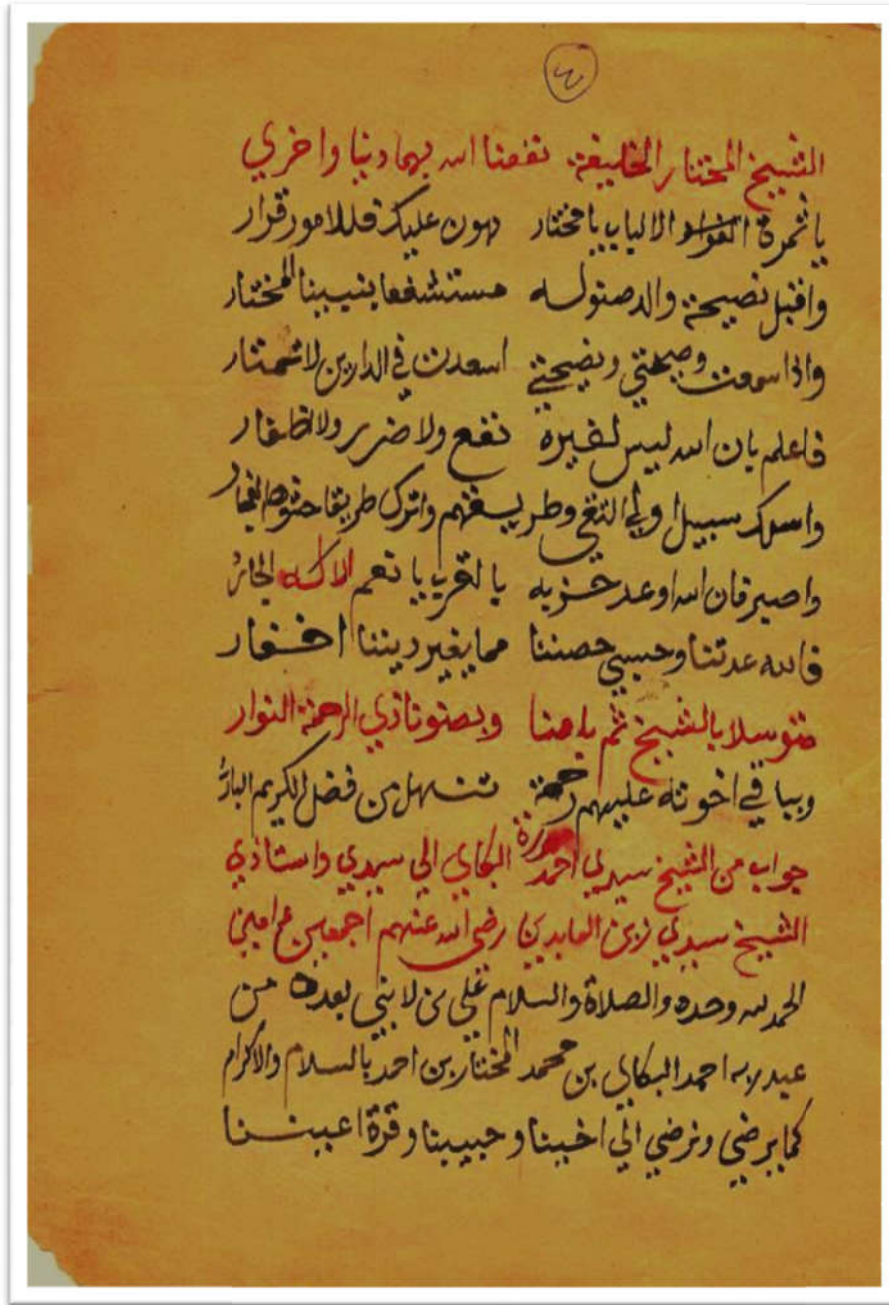 ٤
الشيخ المختار الخليفة نفعنا الله بهما دينا واخري
يا ثمرة الفواد الالباب يا مختار هون عليك فللامور قرار
واقبل نصيحة والد صنو له مستشفعا بنبينا المختار
واذا سمعت وصيتي ونصيحتي اسعدت في الدارين لا تحتار
فاعلم بان الله ليس لغيره نفع ولا ضرر ولا اظفار
واسلك سبيل اولي التقي وطريقهم واترك طريقا حثوها الفجار
واصبر فان الله اوعد حزبه بالقرب يا نعم الاله الجار
فالله عدتنا وحسبي حصننا مما يغير ديننا اخفار
متوسلا بالشيخ ثم بامنا وبصنونا ذي الرحمة النوار
وبباقي اخوته عليهم رحمة تنهل من فضل الكريم البار
جواب من الشيخ سيدي احمد البكاي الي سيدي واستاذي
الشيخ سيدي زين العابدين رضي الله عنهم اجمعين امين
الحمد لله وحده والصلاة والسلام علي من لا نبي بعده من
عبد ربه احمد البكاي بن محمد المختار بن احمد بالسلام والاكرام
كما يرضي ونرضي الي اخينا وحبيبنا وقرة اعيننا